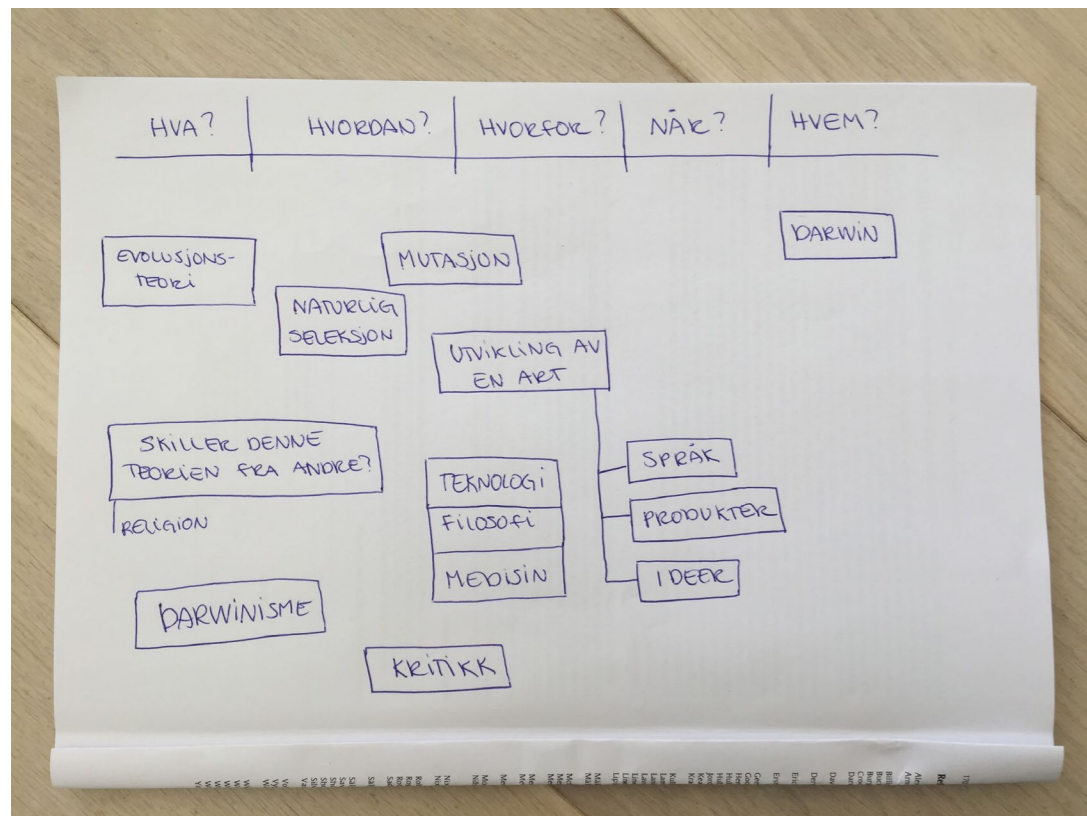 HVA?
HVORDAN?
HVORFOR?
NÅR?
HVEM?
EVOLUSJONS-
TEORI
NATURLIG
SELEKSJON
MUTASJON
UTVIKLING AV
EN ART
DARWIN
SKILLER DENNE
TEORIEN FRA ANDRE?
RELIGION
TEKNOLOGI
FILOSOFI
MEDISIN
SPRÅK
PRODUKTER
IDEER
DARWINISME
KRITIKK